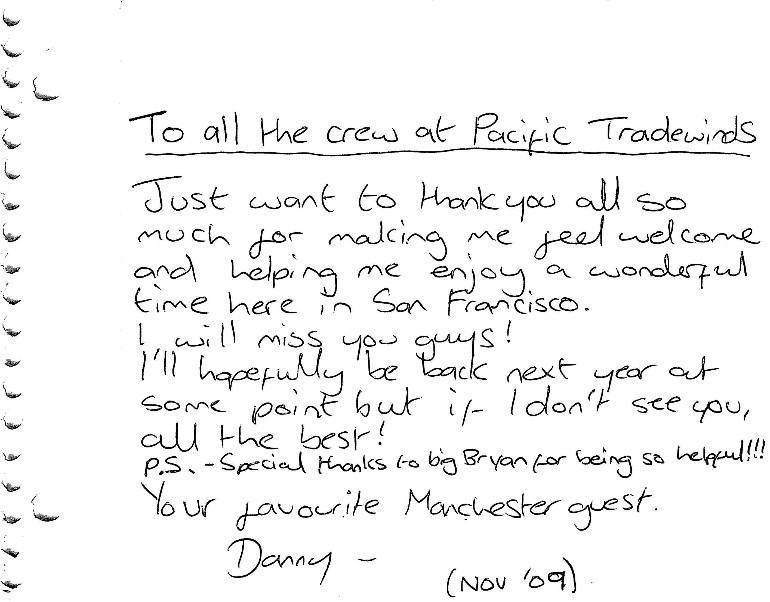 To all the crew at Pacific Tradewinds
Just want to thank you all so
much for making me feel welcome
and helping me enjoy a wonderful
time here in San Francisco.
I will miss you guys!
I'll hopefully be back next year at
some point but if I don't see you,
all the best!
P.S. - Special thanks to big Bryan for being so helpful!!!
Your favourite Manchester guest.
Danny -
(NOV '09)